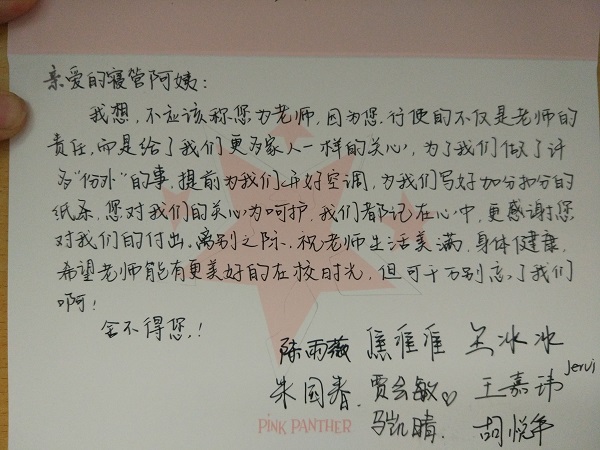 亲爱的寝管阿姨：
我想，不应该称您为老师，因为您行使的不仅是老师的
责任，而是给了我们更多家人一样的关心，为了我们做了许
多“份外”的事，提前为我们开好空调，为我们写好加分扣分的
纸条，您对我们的关心为呵护，我们都记在心中，更感谢您
对我们的付出。离别之际，祝老师生活美满，身体健康，
希望老师能有更美好的在校时光，但可千万别忘了我们
啊！
舍不得您！！
陈雨薇 焦准准 王冰冰
朱国春 贾会敏♡ 王嘉玮 Jerui
马凯晴 胡悦年
PINK PANTHER